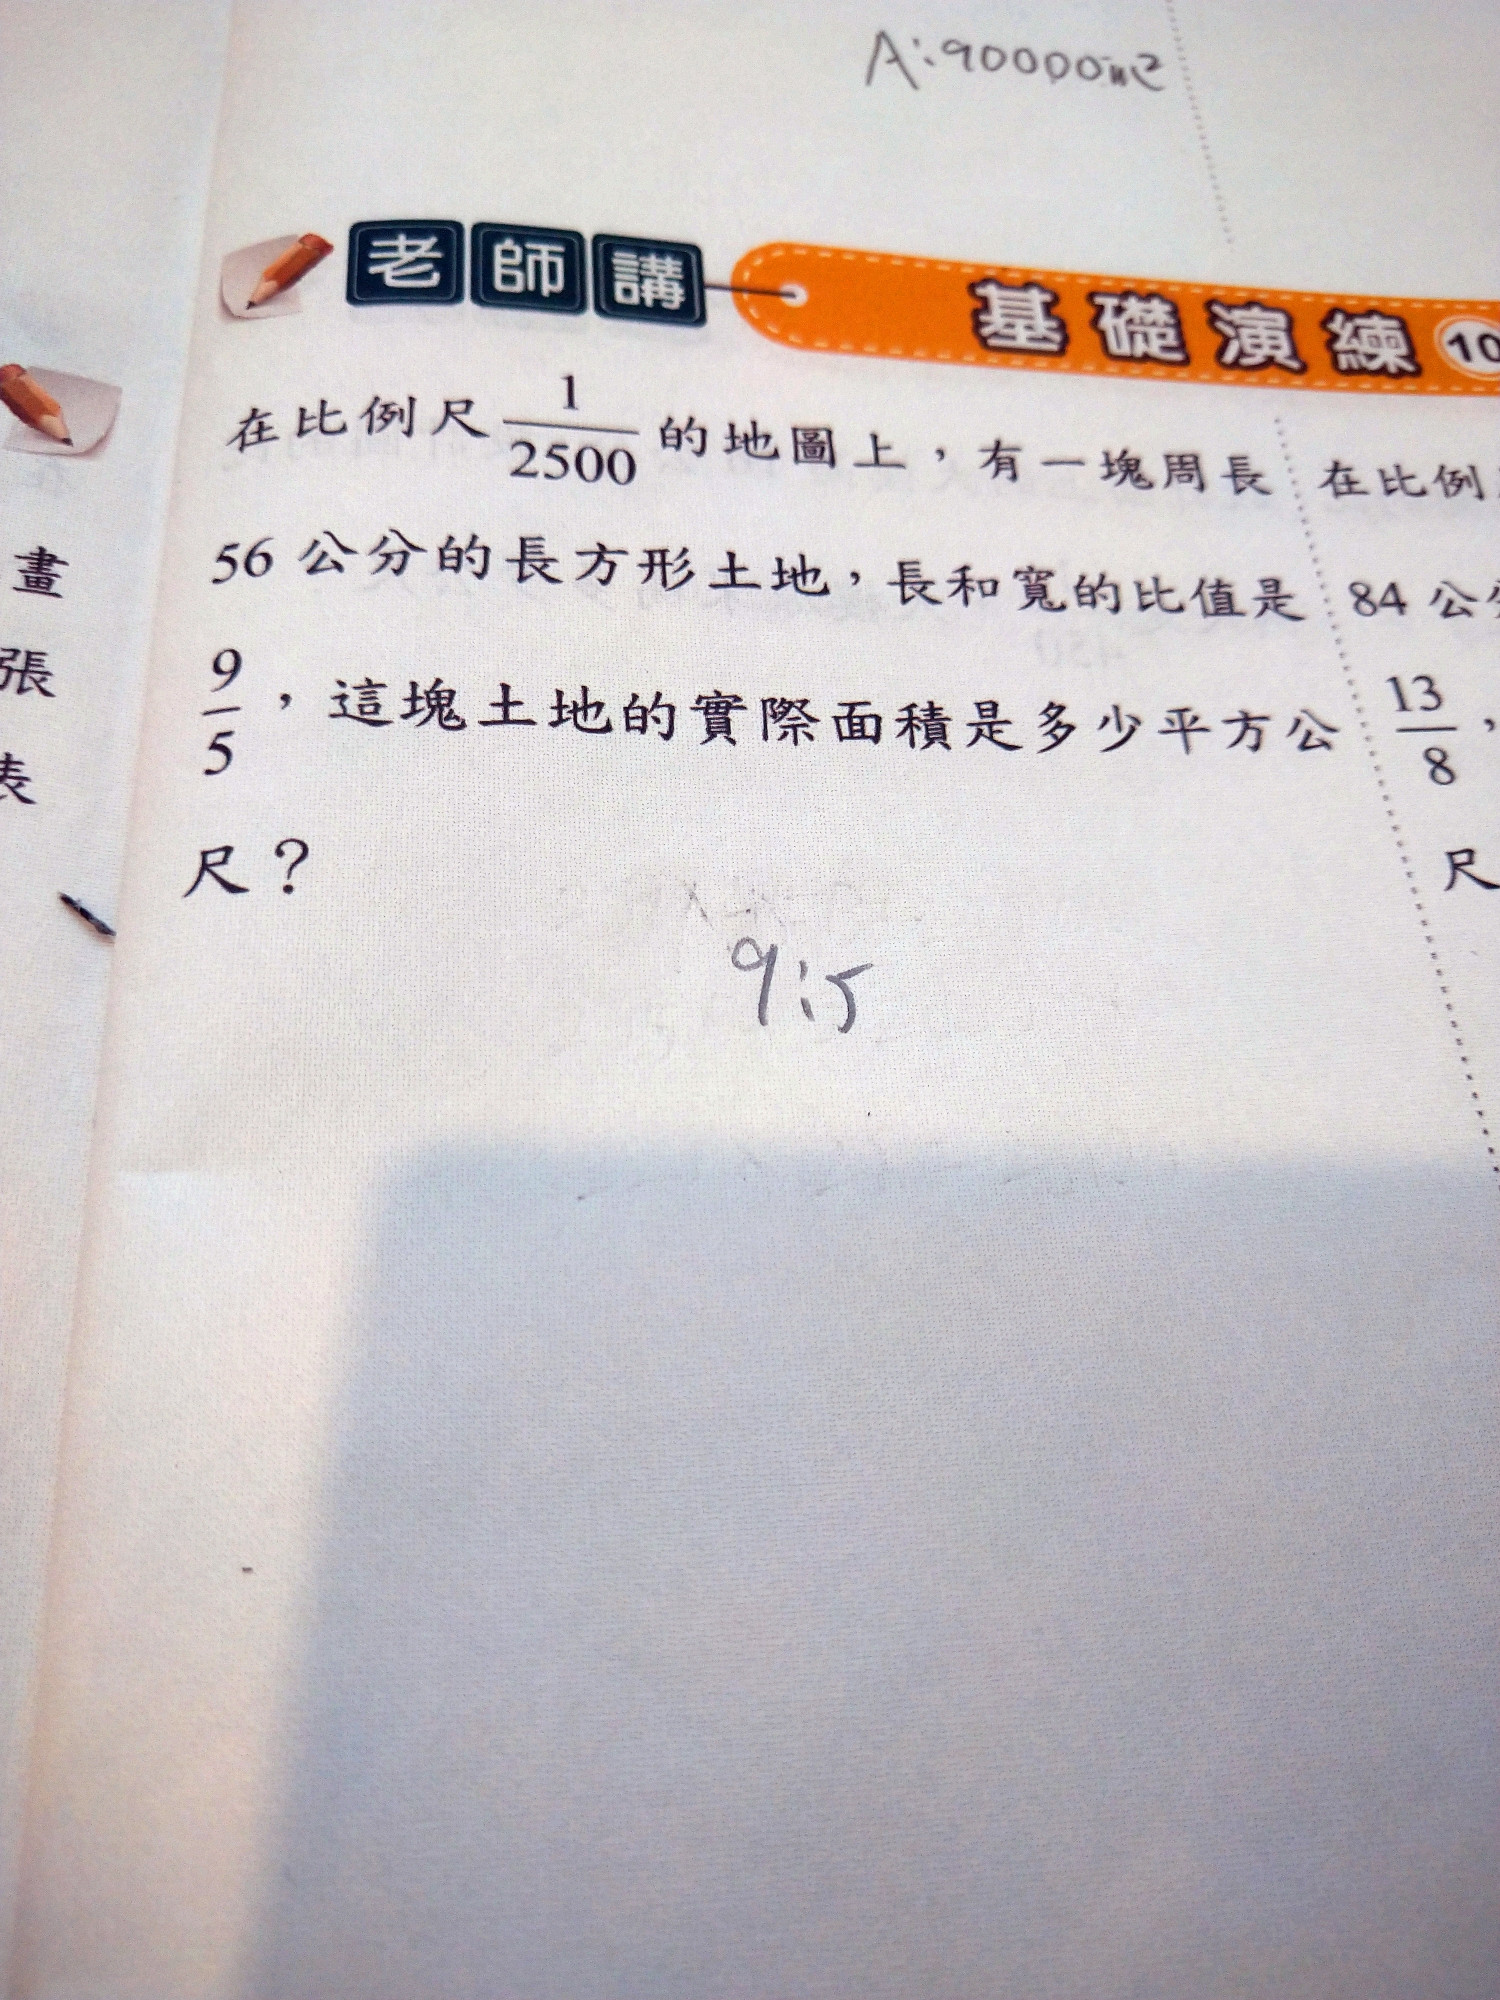 A:90000m²
老師講 基礎演練 10
在比例尺 1/2500 的地圖上，有一塊周長
56 公分的長方形土地，長和寬的比值是
9/5，這塊土地的實際面積是多少平方公
尺？
9:5
在比例
84 公分
13/8，
尺
畫
張
表